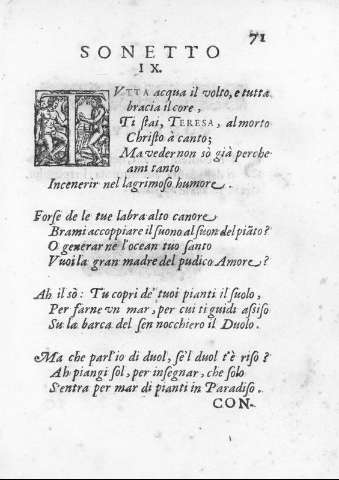 71
SONETTO
IX.
TVTTA acqua il volto, e tutta
bracia il core,
Ti stai, TERESA, al morto
Christo à canto;
Ma veder non sò già perche
ami tanto
Incenerir nel lagrimoso humore.
Forse de le tue labra alto canore
Brami accoppiare il suono al suon del piãto?
O generar ne l'ocean tuo santo
Vuoi la gran madre del pudico Amore?
Ah il sò: Tu copri de' tuoi pianti il suolo,
Per farne vn mar, per cui ti guidi assiso
Su la barca del sen nocchiero il Duolo.
Ma che parl'io di duol, se'l duol t'è riso?
Ah piangi sol, per insegnar, che solo
S'entra per mar di pianti in Paradiso.
CON-